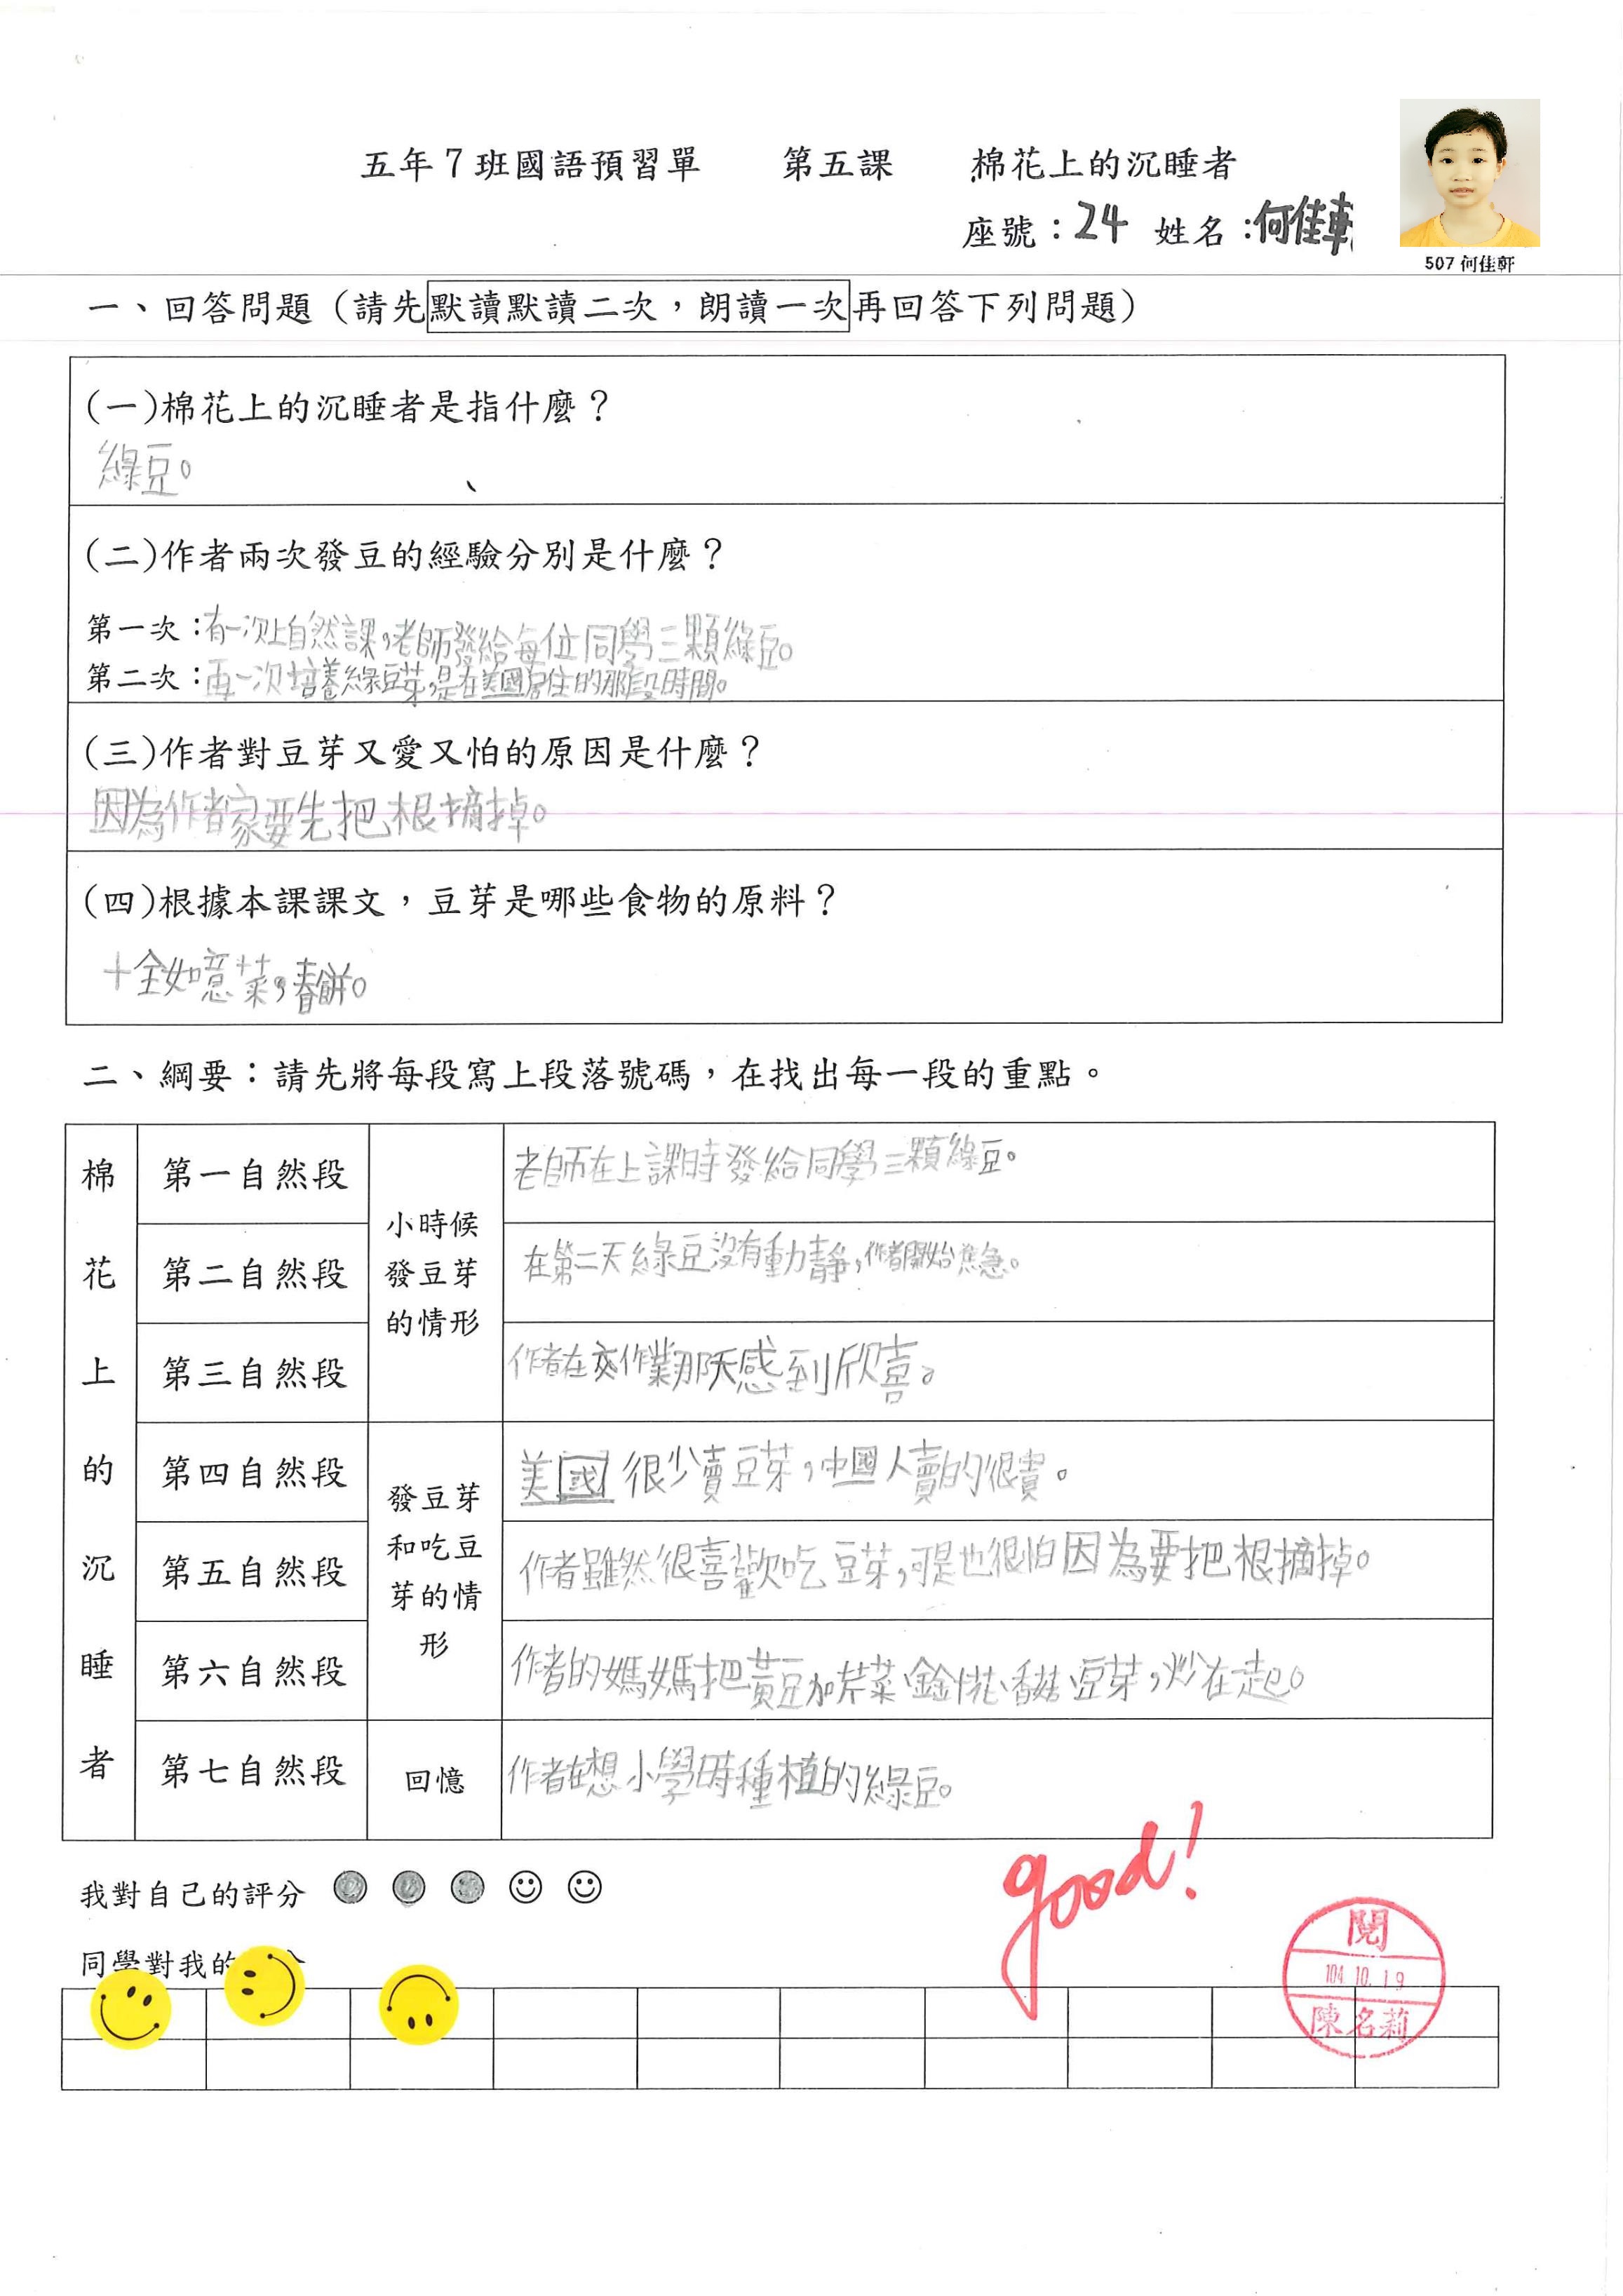 五年7班國語預習單 第五課 棉花上的沉睡者
座號：24 姓名：何佳軒
507 何佳軒
一、回答問題（請先默讀默讀二次，朗讀一次再回答下列問題）
(一)棉花上的沉睡者是指什麼？
綠豆。
(二)作者兩次發豆的經驗分別是什麼？
第一次：有一次上自然課，老師發給每位同學三顆綠豆。
第二次：再一次培養綠豆芽，是在美國居住的那段時間。
(三)作者對豆芽又愛又怕的原因是什麼？
因為作者家要先把根摘掉。
(四)根據本課課文，豆芽是哪些食物的原料？
十全如意菜，春餅。
二、綱要：請先將每段寫上段落號碼，在找出每一段的重點。
棉花上的沉睡者
第一自然段 老師在上課時發給同學三顆綠豆。
小時候發豆芽的情形
第二自然段 在第二天綠豆沒有動靜，作者開始焦急。
第三自然段 作者在交作業那天感到欣喜。
第四自然段 美國很少賣豆芽，中國人賣的很貴。
發豆芽和吃豆芽的情形
第五自然段 作者雖然很喜歡吃豆芽，可是也很怕因為要把根摘掉。
第六自然段 作者的媽媽把黃豆加芹菜、金針花、香菇、豆芽，炒在一起。
第七自然段 回憶 作者在想小學時種植的綠豆。
good!
我對自己的評分
閱
104.10.19
陳名莉
同學對我的